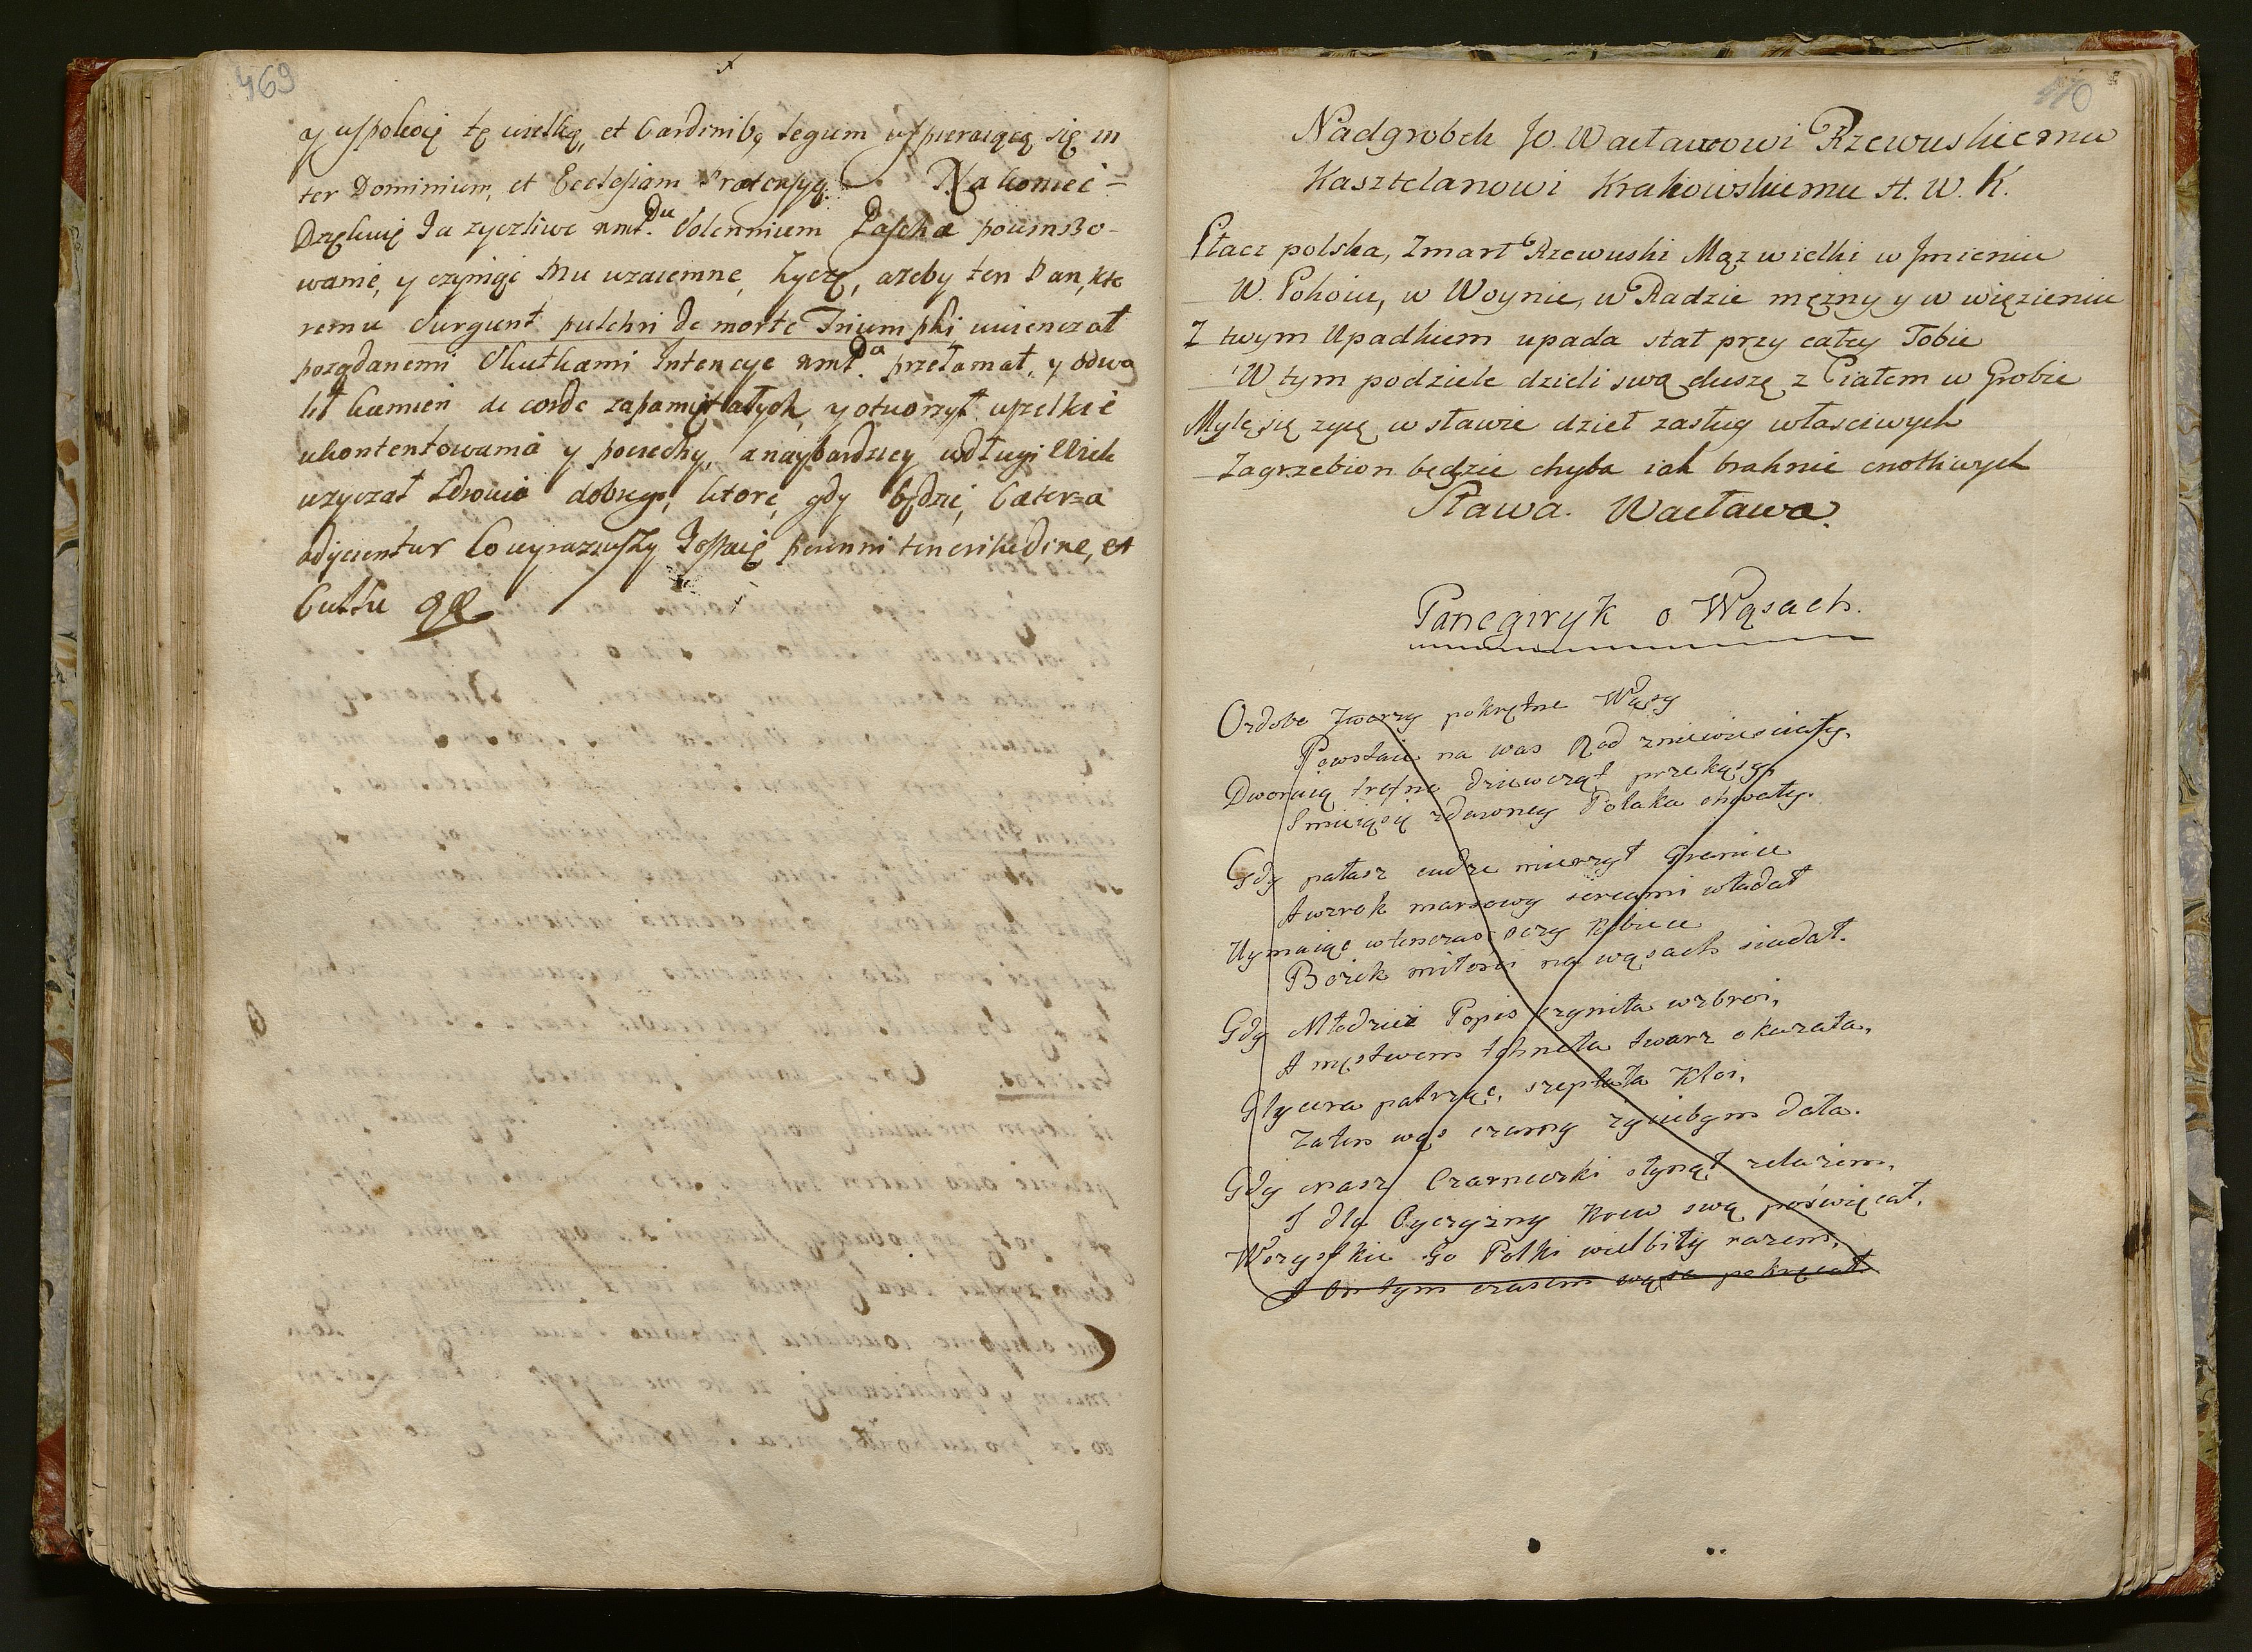 469
y uspokoię tę wielką, et Cardinibq Legum wspieraiącą się in
ter Dominium, et Ecclesiam Protensyą. Nakoniec =
Dzękuię Ja zyczliwe Solennium Paschæ powinszo-
wanie, y czyniąc Mu wzaiemne, życzę, azeby ten Pan, kto
remu surgunt pulchri de morte Triumphi uwienczał
poządanemi Skutkami Intencye przełamał, y odwa
lił kamień de corde zapamiętałych, y otworzył wszelkie
ukontentowania y pociechy, a naybardziey w długi Wiek
uzyczał Zdrowia dobrego, ktore, gdy będzie, Cætera
adjicientur Co wyraziwszy Jestaię perenni et
Cultu
470
Nadgrobek Jo. Wacławowi Rzewuskiemu
Kasztelanowi Krakowskiemu H. W. K.
Płacz polska, Zmarł Rzewuski Mąz wielki w Jmieniu
W. Pokoiu, w Woynie, w Radzie męzny y w więzieniu
Z twym Upadkiem upada stał przy całey Tobie
W tym podziele dzieli swą duszę z Ciałem w Grobie
Mylę się zyię w sławie dzieł zasług własciwych
Zagrzebion będzie chyba iak braknie cnotliwych
Sława. Wacława.
Panegiryk o Wąsach.
Ozdobo Twarzy pokrętne Wąsy
Powstaie na was Rod zniewiesciały,
Dworuią trefne dziewcząt przekąsy,
Smieią się zdawney Polaka chwały.
Gdy pałasz cudze mierzył Granice
A wzrok marsowy sercami władał
Uymuiąc wtenczas oczy Kobiece
Bożek miłości na wąsach siadał.
Gdy Młodzież Popis czyniła wzbroi,
A męstwem tchnęła twarz okazała,
Glycera patrząc, szeptała Kloi,
Zaten wąs czarny zyciebym dała.
Gdy nasz Czarniecki słynął zelazem,
I dla Oyczyzny Krew swą poświęcał,
Wszystkie Go Polki wielbiły razem,
A On tym czasem wąsa pokręcał.